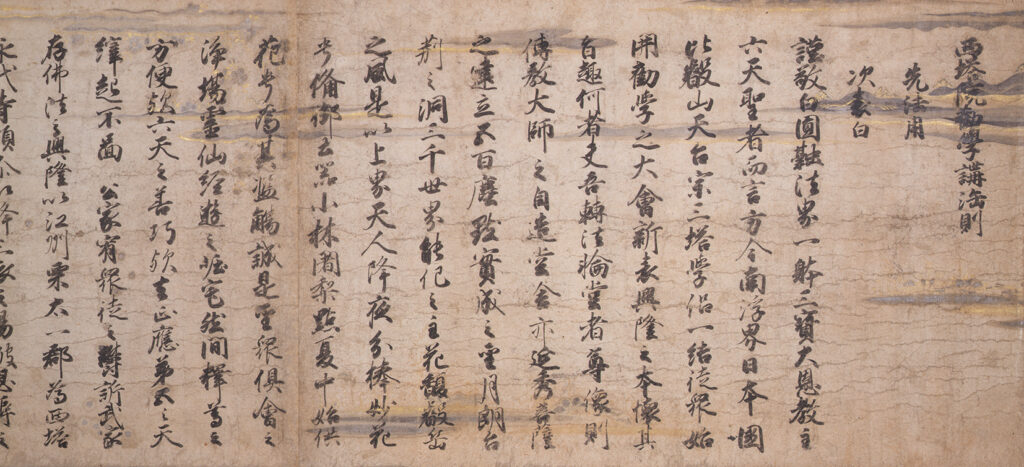 西塔院勧学講法則
先法用
次表白
謹敬白圓融法界一躰三寶大恩教主
六天聖者而言方今南浮界日本國
比叡山天台宗三塔学侶一結徒衆始
開勧学之大會新表興隆之本懐其
旨趣何者夫吾轉法輪堂者尊像則
傳教大師之自造堂舎亦延秀菩薩
之建立五百塵點實成之雲月朗台
荊之洞三千世界能化之主花馥叡岳
之風是以上界天人降夜分捧妙花
少林闍梨點夏中始供
花告為其濫觴誠是聖衆倶會之
浄場霊仙經遊之崛宅然間釋尊之
方便歟六天之善巧歟去正應第五之天
緯起不啚公家有衆徒之欝訴武家
存佛法之興隆以江州栗太一郡為西塔
永代寺領